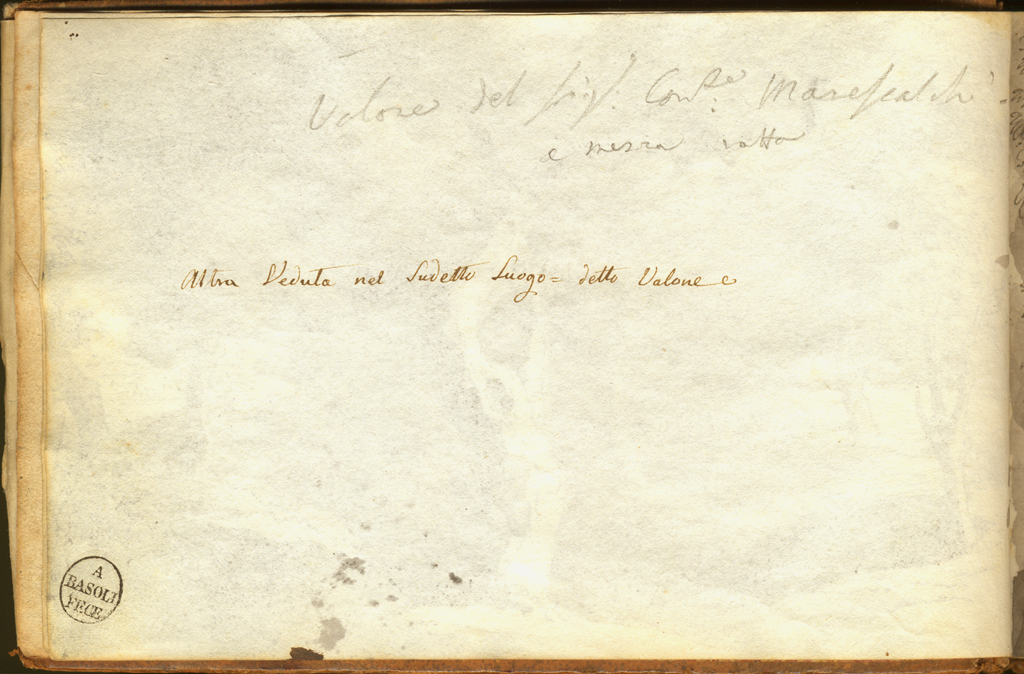 Valone del Sig.r Con.te Marescalchi
e mezza ratta
Altra Veduta nel Sudetto Luogo = detto Valone e
A
BASOLI
FECE